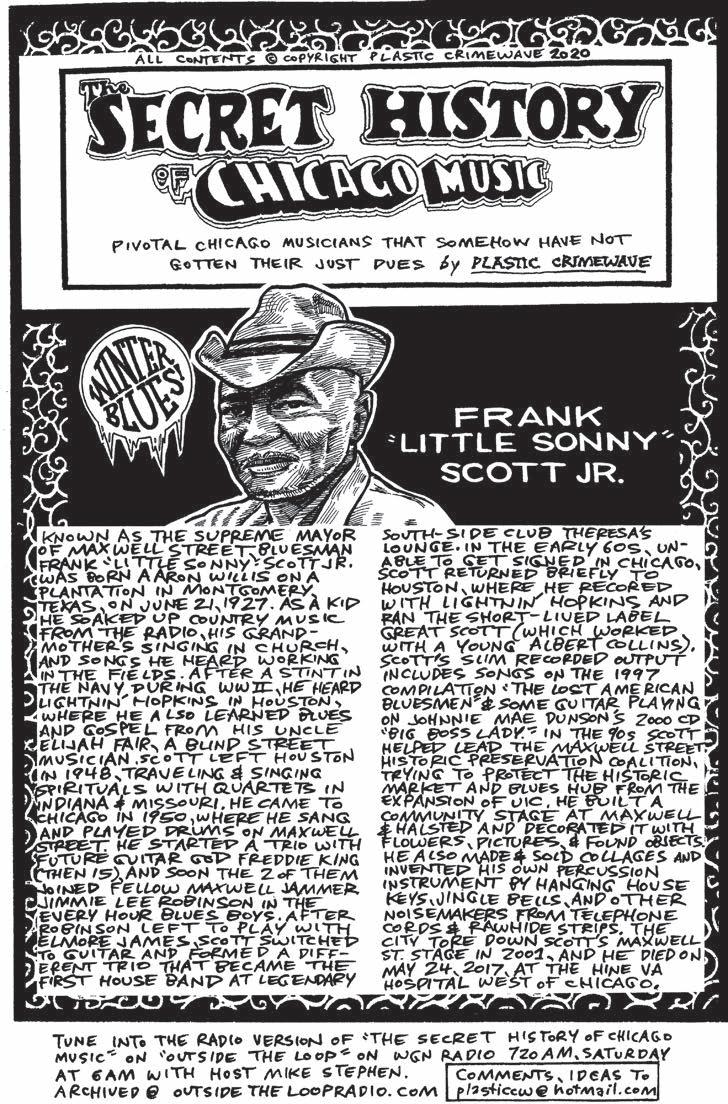 ALL CONTENTS © COPYRIGHT PLASTIC CRIMEWAVE 2020
The
SECRET HISTORY
OF CHICAGO MUSIC
PIVOTAL CHICAGO MUSICIANS THAT SOMEHOW HAVE NOT
GOTTEN THEIR JUST DUES by PLASTIC CRIMEWAVE
WINTER
BLUES!
FRANK
"LITTLE SONNY"
SCOTT JR.
KNOWN AS THE SUPREME MAYOR
OF MAXWELL STREET, BLUESMAN
FRANK "LITTLE SONNY" SCOTT JR.
WAS BORN AARON WILLIS ON A
PLANTATION IN MONTGOMERY,
TEXAS, ON JUNE 21, 1927. AS A KID
HE SOAKED UP COUNTRY MUSIC
FROM THE RADIO, HIS GRAND-
MOTHER'S SINGING IN CHURCH,
AND SONGS HE HEARD WORKING
IN THE FIELDS. AFTER A STINT IN
THE NAVY DURING WWII, HE HEARD
LIGHTNIN' HOPKINS IN HOUSTON,
WHERE HE ALSO LEARNED BLUES
AND GOSPEL FROM HIS UNCLE
ELIJAH FAIR, A BLIND STREET
MUSICIAN. SCOTT LEFT HOUSTON
IN 1948, TRAVELING & SINGING
SPIRITUALS WITH QUARTETS IN
INDIANA & MISSOURI. HE CAME TO
CHICAGO IN 1950, WHERE HE SANG
AND PLAYED DRUMS ON MAXWELL
STREET. HE STARTED A TRIO WITH
FUTURE GUITAR GOD FREDDIE KING
(THEN 15), AND SOON THE 2 OF THEM
JOINED FELLOW MAXWELL JAMMER
JIMMIE LEE ROBINSON IN THE
EVERY HOUR BLUES BOYS. AFTER
ROBINSON LEFT TO PLAY WITH
ELMORE JAMES, SCOTT SWITCHED
TO GUITAR AND FORMED A DIFF-
ERENT TRIO THAT BECAME THE
FIRST HOUSE BAND AT LEGENDARY
SOUTH-SIDE CLUB THERESA'S
LOUNGE. IN THE EARLY 60S, UN-
ABLE TO GET SIGNED IN CHICAGO,
SCOTT RETURNED BRIEFLY TO
HOUSTON, WHERE HE RECORED
WITH LIGHTNIN' HOPKINS AND
RAN THE SHORT-LIVED LABEL
GREAT SCOTT (WHICH WORKED
WITH A YOUNG ALBERT COLLINS).
SCOTT'S SLIM RECORDED OUTPUT
INCLUDES SONGS ON THE 1997
COMPILATION "THE LOST AMERICAN
BLUESMEN" & SOME GUITAR PLAYING
ON JOHNNIE MAE DUNSON'S 2000 CD
"BIG BOSS LADY." IN THE 90S SCOTT
HELPED LEAD THE MAXWELL STREET
HISTORIC PRESERVATION COALITION,
TRYING TO PROTECT THE HISTORIC
MARKET AND BLUES HUB FROM THE
EXPANSION OF UIC. HE BUILT A
COMMUNITY STAGE AT MAXWELL
& HALSTED AND DECORATED IT WITH
FLOWERS, PICTURES, & FOUND OBJECTS.
HE ALSO MADE & SOLD COLLAGES AND
INVENTED HIS OWN PERCUSSION
INSTRUMENT BY HANGING HOUSE
KEYS, JINGLE BELLS, AND OTHER
NOISEMAKERS FROM TELEPHONE
CORDS & RAWHIDE STRIPS. THE
CITY TORE DOWN SCOTT'S MAXWELL
ST. STAGE IN 2001, AND HE DIED ON
MAY 24, 2017, AT THE HINE VA
HOSPITAL WEST OF CHICAGO.
TUNE INTO THE RADIO VERSION OF "THE SECRET HISTORY OF CHICAGO
MUSIC" ON "OUTSIDE THE LOOP" ON WGN RADIO 720 AM, SATURDAY
AT 6AM WITH HOST MIKE STEPHEN.
ARCHIVED @ OUTSIDE THE LOOPRADIO.COM
COMMENTS, IDEAS TO
plasticcw@hotmail.com